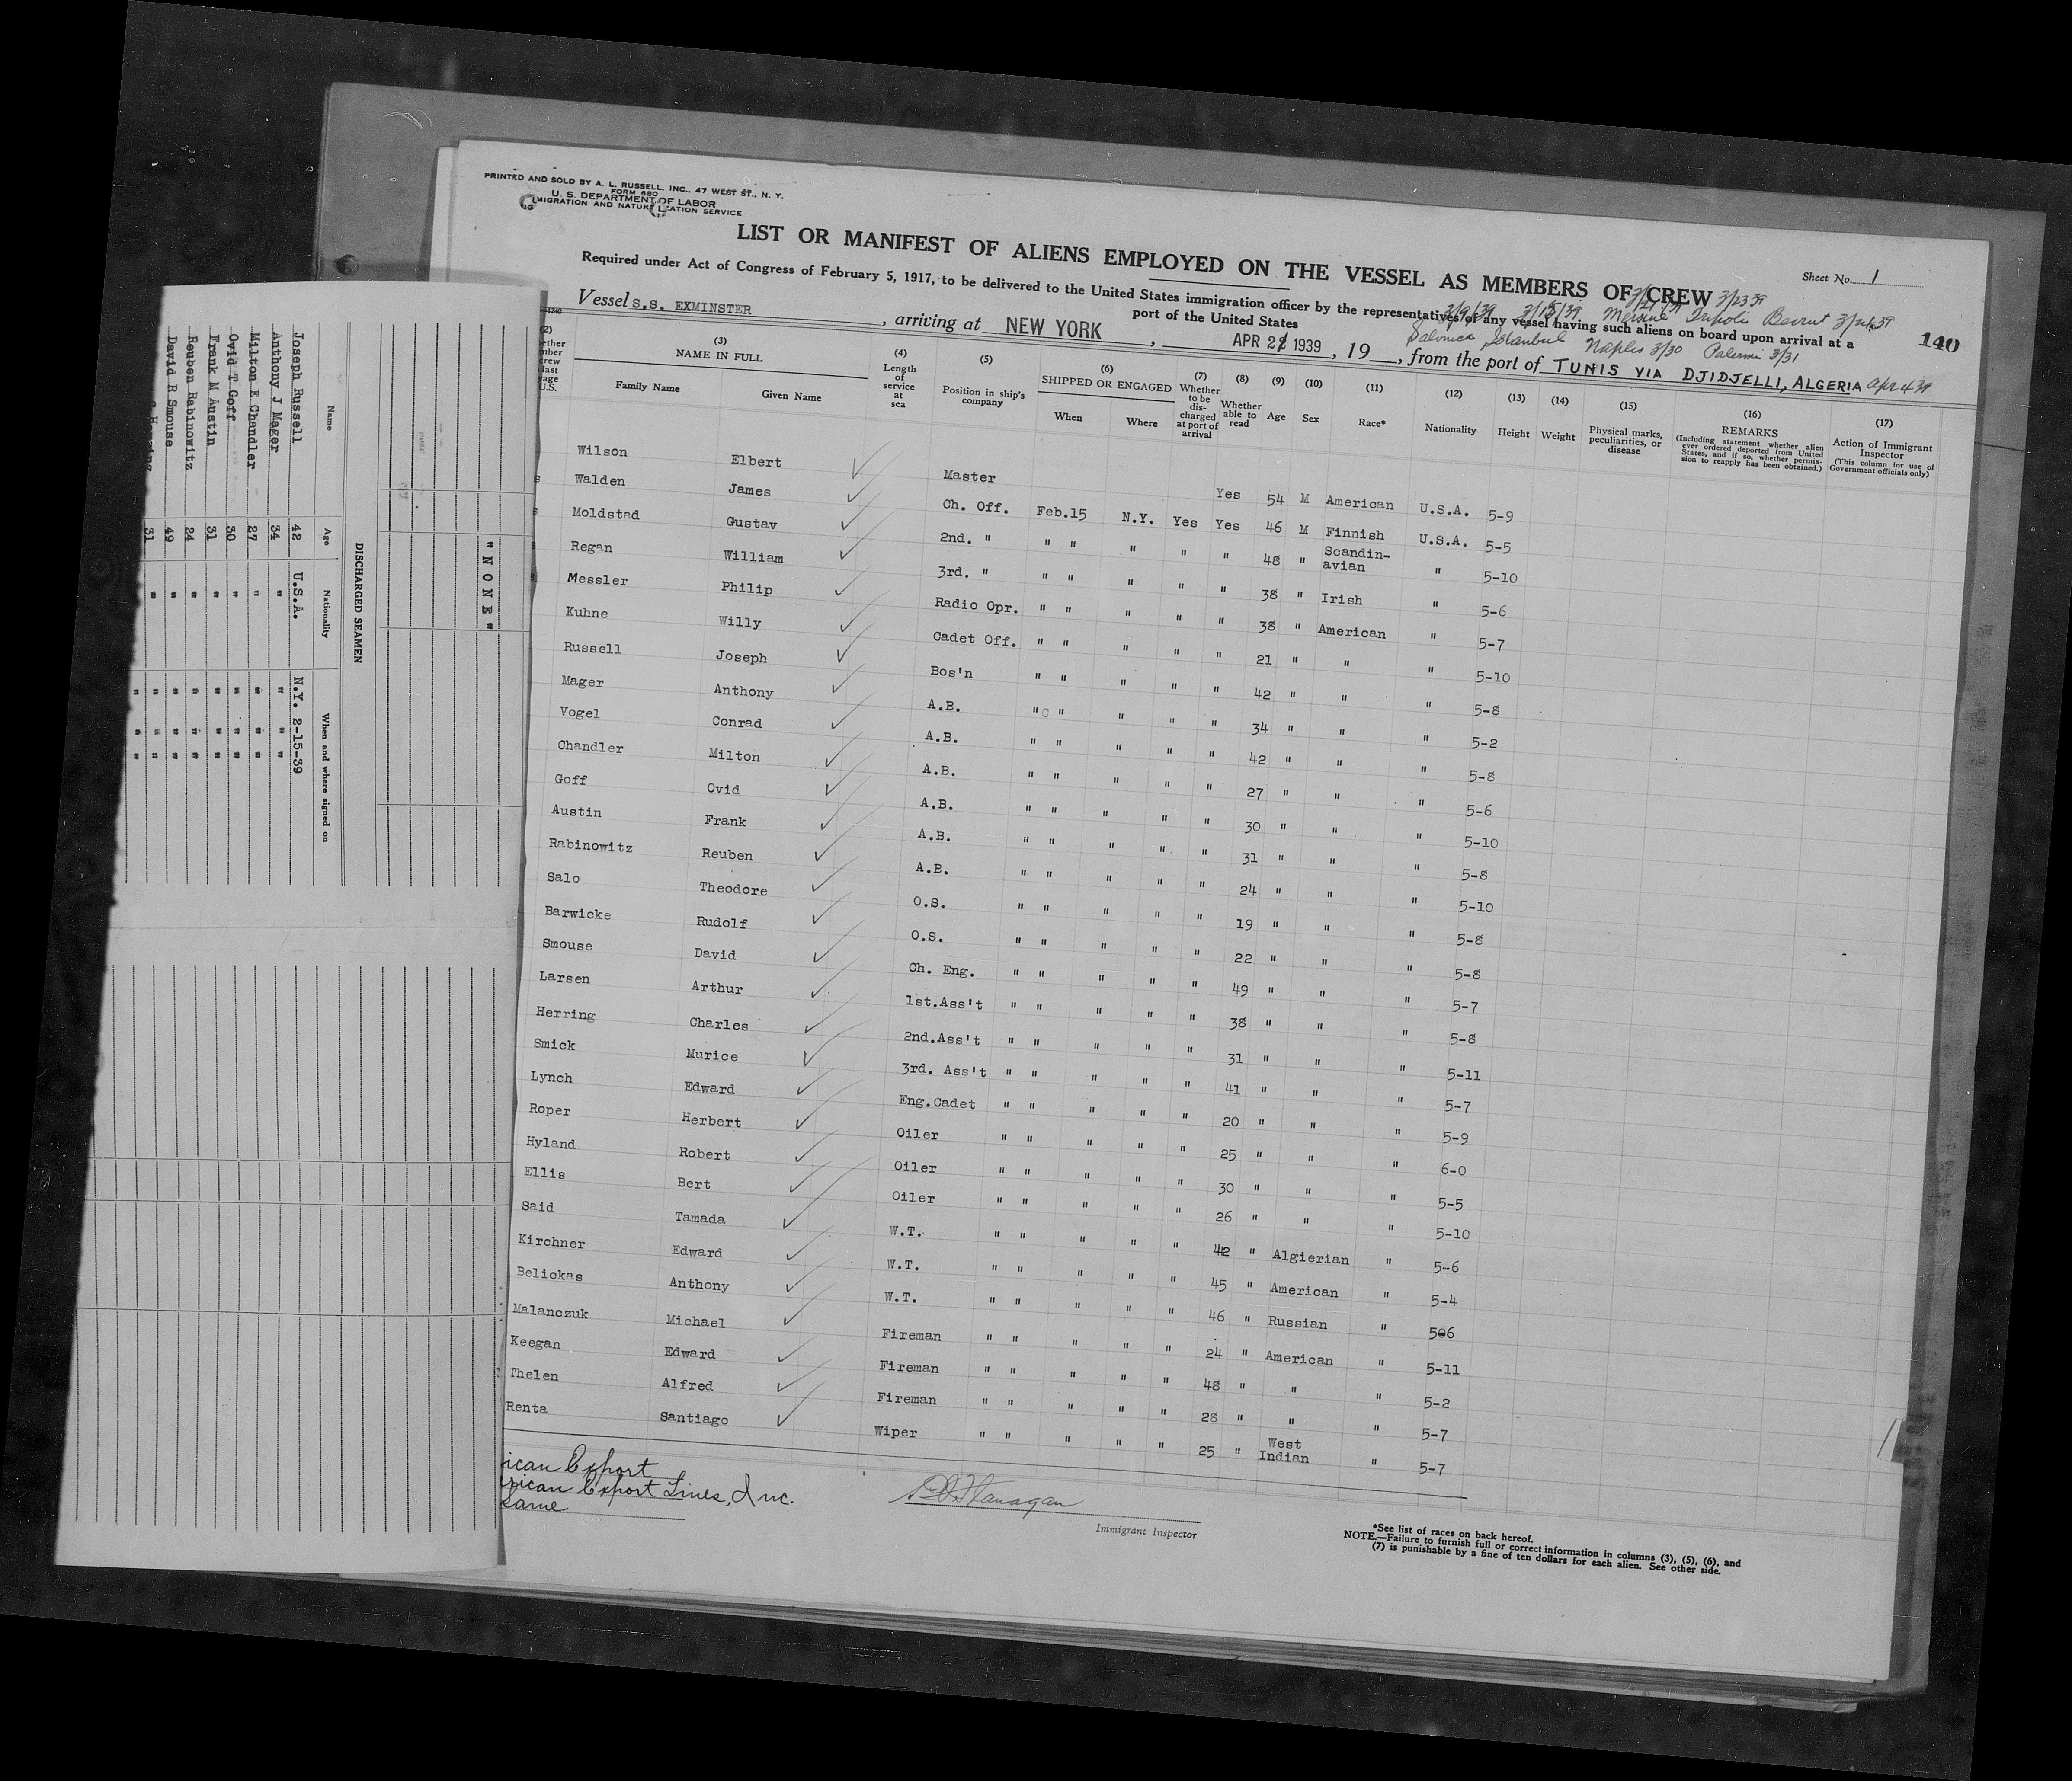 PRINTED AND SOLD BY A. L. RUSSELL, INC., 47 WEST ST., N. Y.
FORM 680
U. S. DEPARTMENT OF LABOR
IMMIGRATION AND NATURALIZATION SERVICE
LIST OR MANIFEST OF ALIENS EMPLOYED ON THE VESSEL AS MEMBERS OF CREW
Sheet No. 1
Required under Act of Congress of February 5, 1917, to be delivered to the United States immigration officer by the representatives of any vessel having such aliens on board upon arrival at a
port of the United States
3/23 39
3/9/39 3/15/39 Mersine Tripoli Beirut
Salonica Istanbul Naples 3/30 Palermo 3/31
140
Vessel S.S. EXMINSTER, arriving at NEW YORK, APR 22 1939, 19, from the port of TUNIS VIA DJIDJELLI, ALGERIA Apr 4 39
(2) (3) (4) (5) (6) (7) (8) (9) (10) (11) (12) (13) (14) (15) (16) (17)
NAME IN FULL
Family Name Given Name
Length of service at sea
Position in ship's company
SHIPPED OR ENGAGED
When Where
Whether to be discharged at port of arrival
Whether able to read
Age Sex Race* Nationality Height Weight
Physical marks, peculiarities, or disease
REMARKS
(Including statement whether alien ever ordered deported from United States, and if so, whether permission to reapply has been obtained.)
Action of Immigrant Inspector
(This column for use of Government officials only)
Wilson Elbert Master Yes 54 M American U.S.A. 5-9
Walden James Ch. Off. Feb.15 N.Y. Yes Yes 46 M Finnish U.S.A. 5-5
Moldstad Gustav 2nd. " " " " " " 48 " Scandin-avian " 5-10
Regan William 3rd. " " " " " " 38 " Irish " 5-6
Messler Philip Radio Opr. " " " " " 38 " American " 5-7
Kuhne Willy Cadet Off. " " " " " 21 " " " 5-10
Russell Joseph Bos'n " " " " " 42 " " " 5-8
Mager Anthony A.B. " " " " " 34 " " " 5-2
Vogel Conrad A.B. " " " " " 42 " " " 5-8
Chandler Milton A.B. " " " " " 27 " " " 5-6
Goff Ovid A.B. " " " " " 30 " " " 5-10
Austin Frank A.B. " " " " " 31 " " " 5-8
Rabinowitz Reuben A.B. " " " " " 24 " " " 5-10
Salo Theodore O.S. " " " " " 19 " " " 5-8
Barwicke Rudolf O.S. " " " " " 22 " " " 5-8
Smouse David Ch. Eng. " " " " " 49 " " " 5-7
Larsen Arthur 1st.Ass't " " " " " 38 " " " 5-8
Herring Charles 2nd.Ass't " " " " " 31 " " " 5-11
Smick Murice 3rd. Ass't " " " " " 41 " " " 5-7
Lynch Edward Eng.Cadet " " " " " 20 " " " 5-9
Roper Herbert Oiler " " " " " 25 " " " 6-0
Hyland Robert Oiler " " " " " 30 " " " 5-5
Ellis Bert Oiler " " " " " 26 " " " 5-10
Said Tamada W.T. " " " " " 42 " Algierian " 5-6
Kirchner Edward W.T. " " " " " 45 " American " 5-4
Belickas Anthony W.T. " " " " " 46 " Russian " 506
Malanczuk Michael Fireman " " " " " 24 " American " 5-11
Keegan Edward Fireman " " " " " 48 " " " 5-2
Thelen Alfred Fireman " " " " " 28 " " " 5-7
Renta Santiago Wiper " " " " " 25 " West Indian " 5-7
ican Export
rican Export Lines, Inc.
same
Flanagan
Immigrant Inspector
*See list of races on back hereof.
NOTE.—Failure to furnish full or correct information in columns (3), (5), (6), and
(7) is punishable by a fine of ten dollars for each alien. See other side.
" N O N E "
DISCHARGED SEAMEN
Name Age Nationality When and where signed on
Joseph Russell 42 U.S.A. N.Y. 2-15-39
Anthony J Mager 34 " " " "
Milton E Chandler 27 " " " "
Ovid T Goff 30 " " " "
Frank M Austin 31 " " " "
Reuben Rabinowitz 24 " " " "
David R Smouse 49 " " " "
31 " " " "